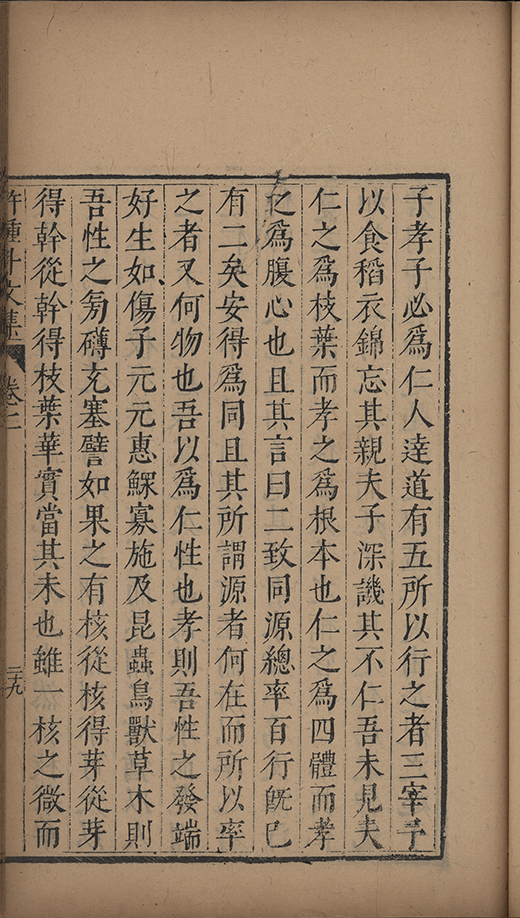 子孝子必爲仁人達道有五所以行之者三宰予
以食稻衣錦忘其親夫子深譏其不仁吾未見夫
仁之爲枝葉而孝之爲根本也仁之爲四體而孝
之爲腹心也且其言曰二致同源總率百行旣已
有二矣安得爲同且其所謂源者何在而所以率
之者又何物也吾以爲仁性也孝則吾性之發端
好生如傷子元元惠鰥寡施及昆蟲鳥獸草木則
吾性之旁礴充塞譬如果之有核從核得芽從芽
得幹從幹得枝葉華實當其未也雖一核之微而
許鍾斗文集 卷二 二十九